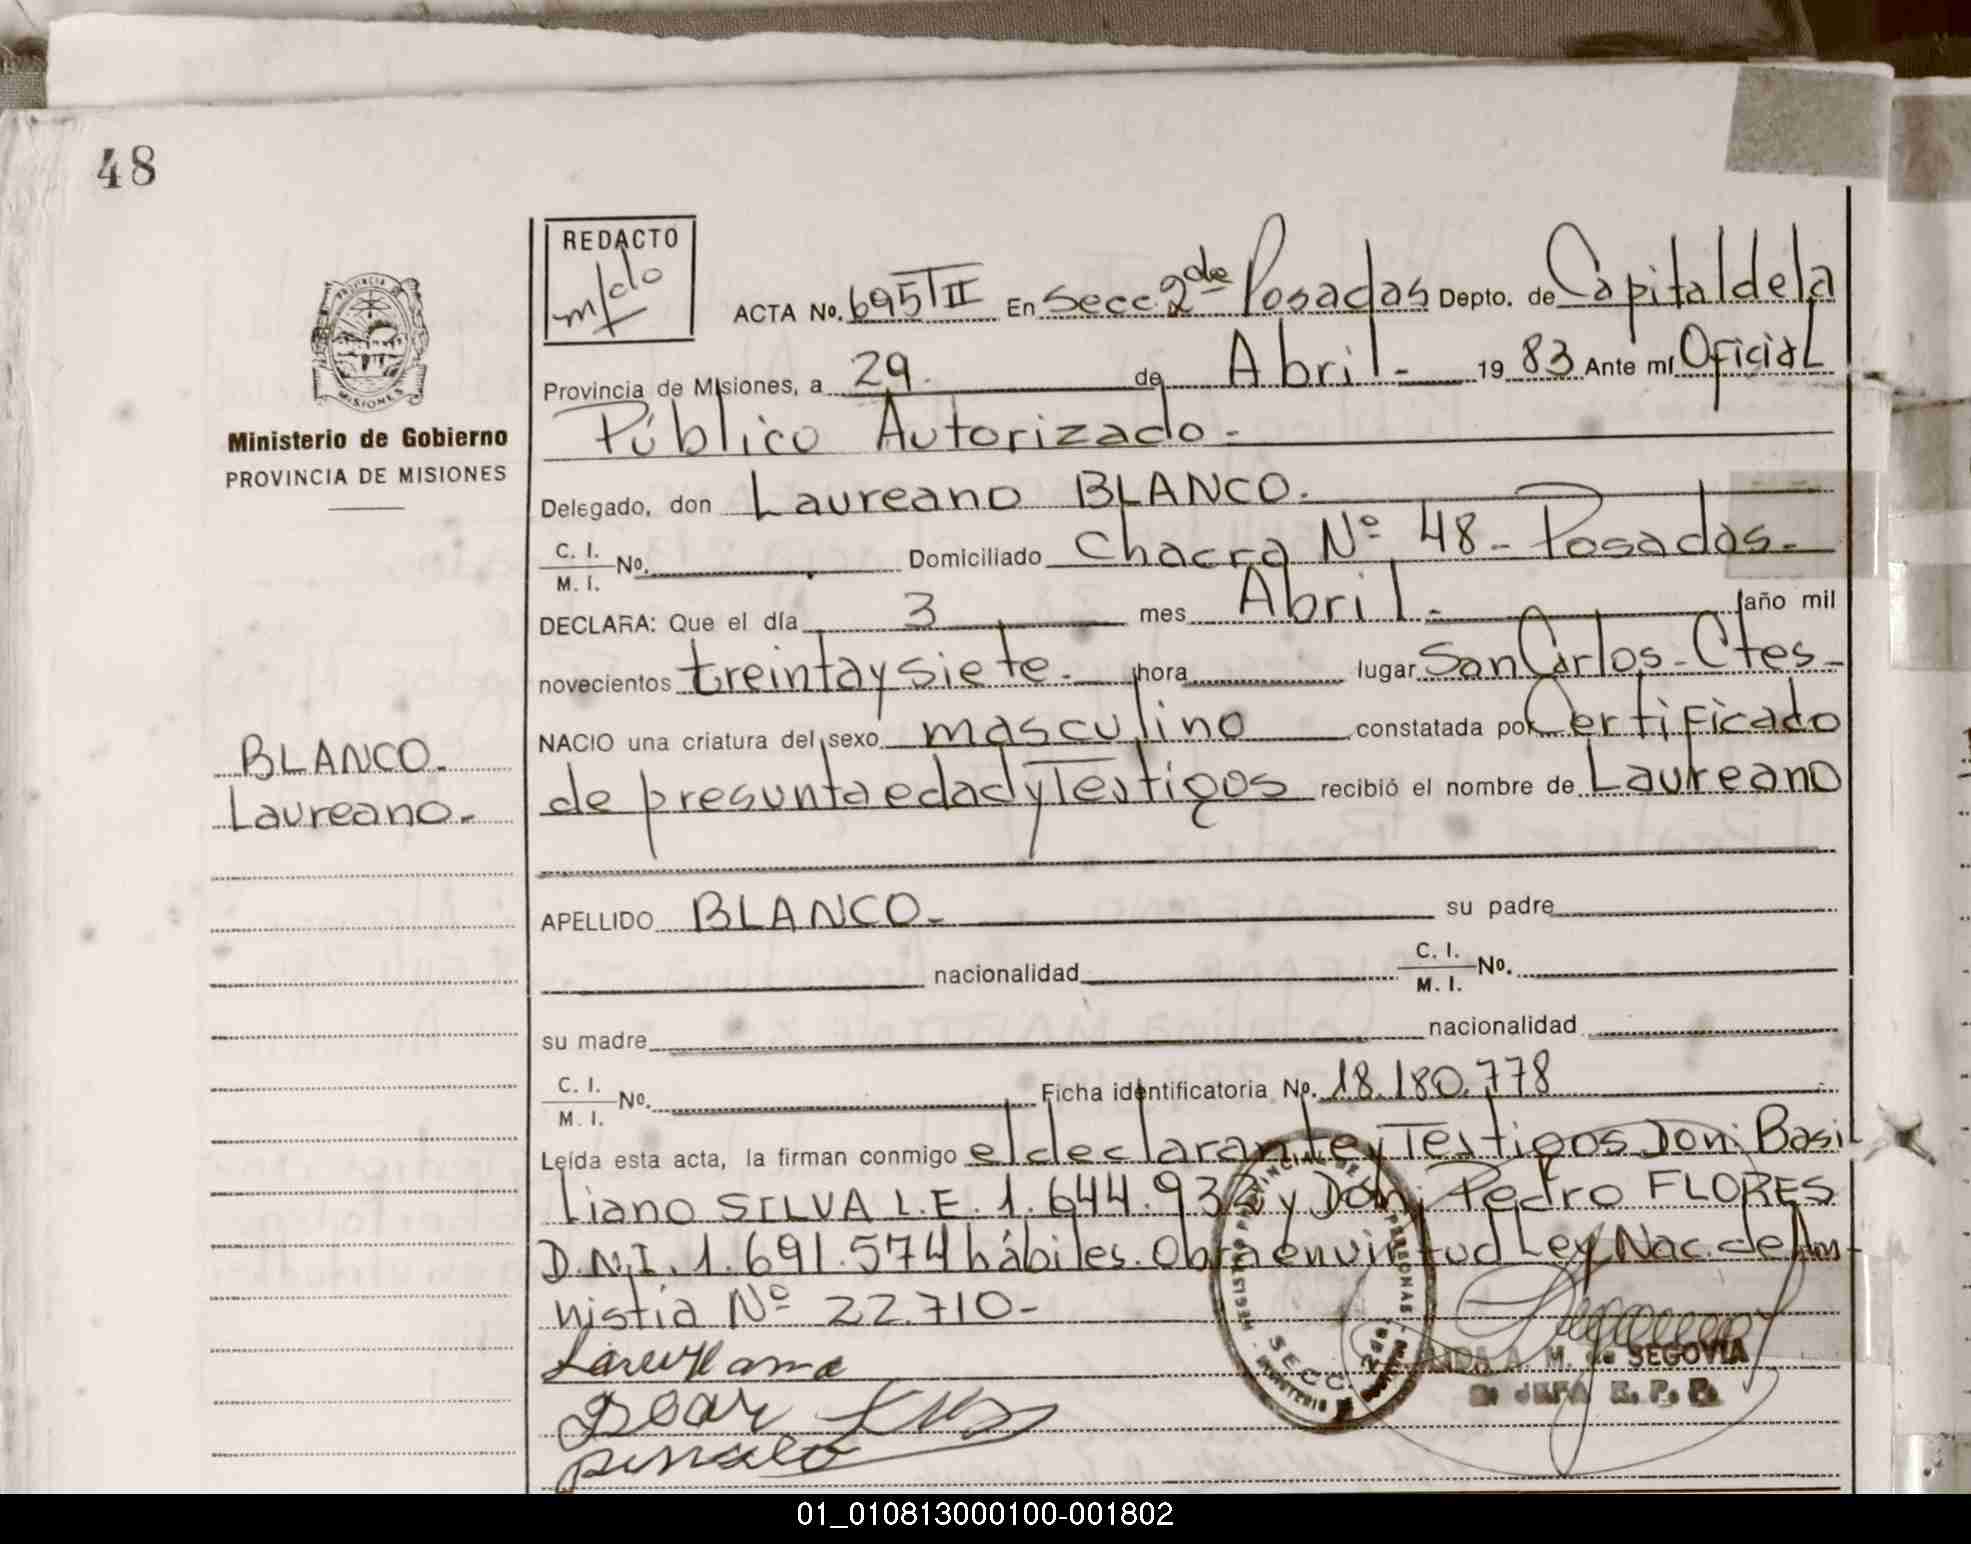 48
REDACTO
ACTA No. 695 TII En Secc. 2da de Posadas Depto. de Capital de la
Provincia de Misiones, a 29. de Abril.- 1983 Ante mí Oficial
Público Autorizado.-
Ministerio de Gobierno
PROVINCIA DE MISIONES
Delegado, don Laureano BLANCO.
C. I.
M. I. No. Domiciliado Chacra Nº 48 - Posadas.-
DECLARA: Que el día 3 mes Abril.- año mil
novecientos treinta y siete.- hora lugar San Carlos - Ctes -
NACIO una criatura del sexo masculino constatada por Certificado
de presunta edad y Testigos recibió el nombre de Laureano
BLANCO.-
Laureano.-
APELLIDO BLANCO.- su padre
nacionalidad C. I.
M. I. No.
su madre nacionalidad
C. I.
M. I. No. Ficha identificatoria No. 18.180.778
Leída esta acta, la firman conmigo el declarante y Testigos Don: Basi
liano SILVA L.E. 1.644.932 y Don: Pedro FLORES
D.N.I. 1.691.574 hábiles. Obra en virtud Ley Nac. de Am-
nistia Nº 22.710-
A. M. de SEGOVIA
JEFA
SECC
01_010813000100-001802